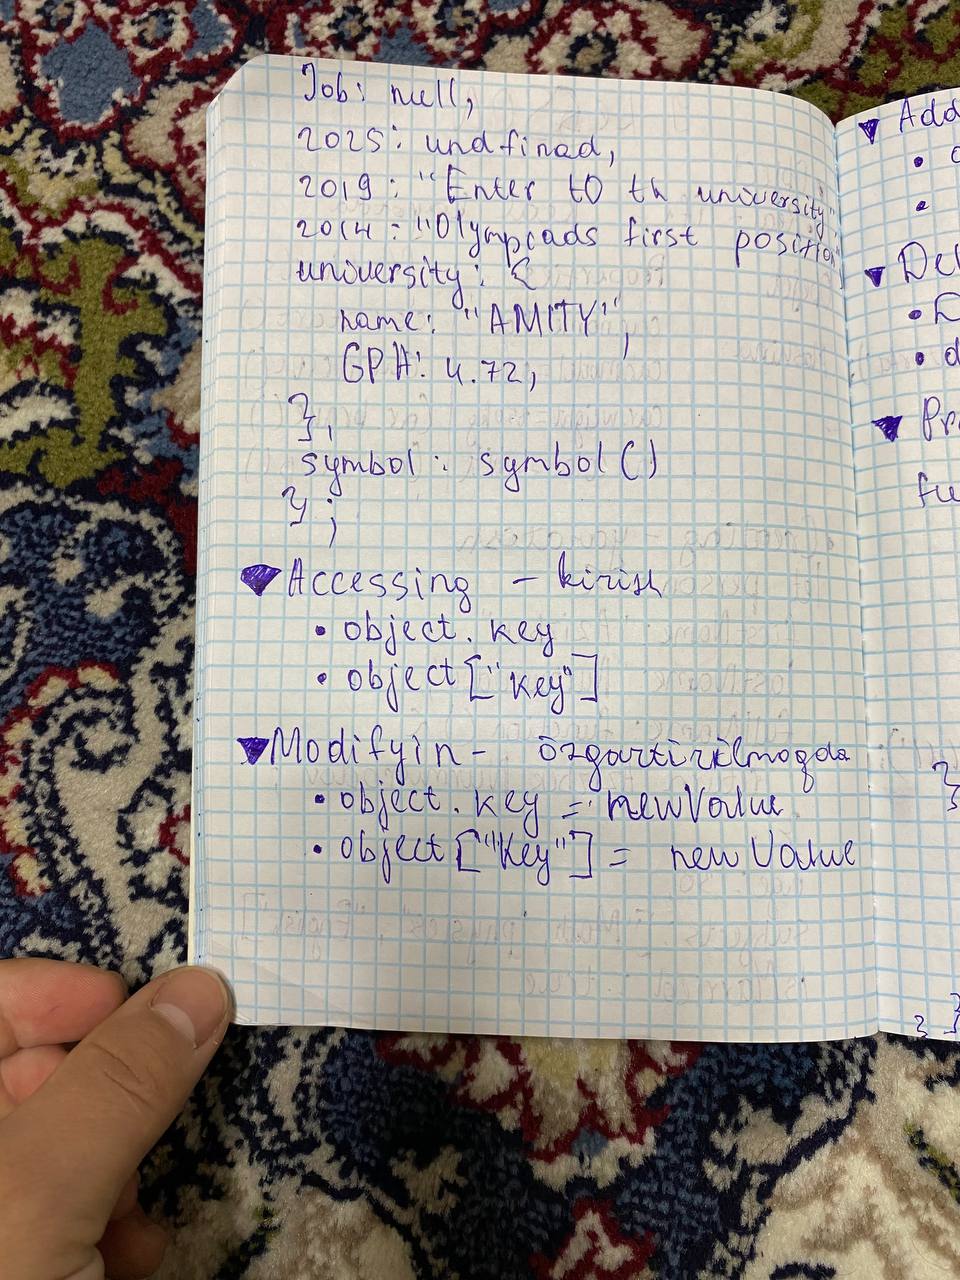 Job: null,
2025: undfinad,
2019: "Enter to th university",
2014: "Olympcads first position
university: {
name: "AMITY",
GPA: 4.72,
},
symbol: symbol()
};
Accessing - kirish
• object.key
• object["key"]
Modifyin - özgartirilmoqda
• object.key = newValue
• object["key"] = newValue
Add
Del
• D
• d
Pr
fu
}
}
}